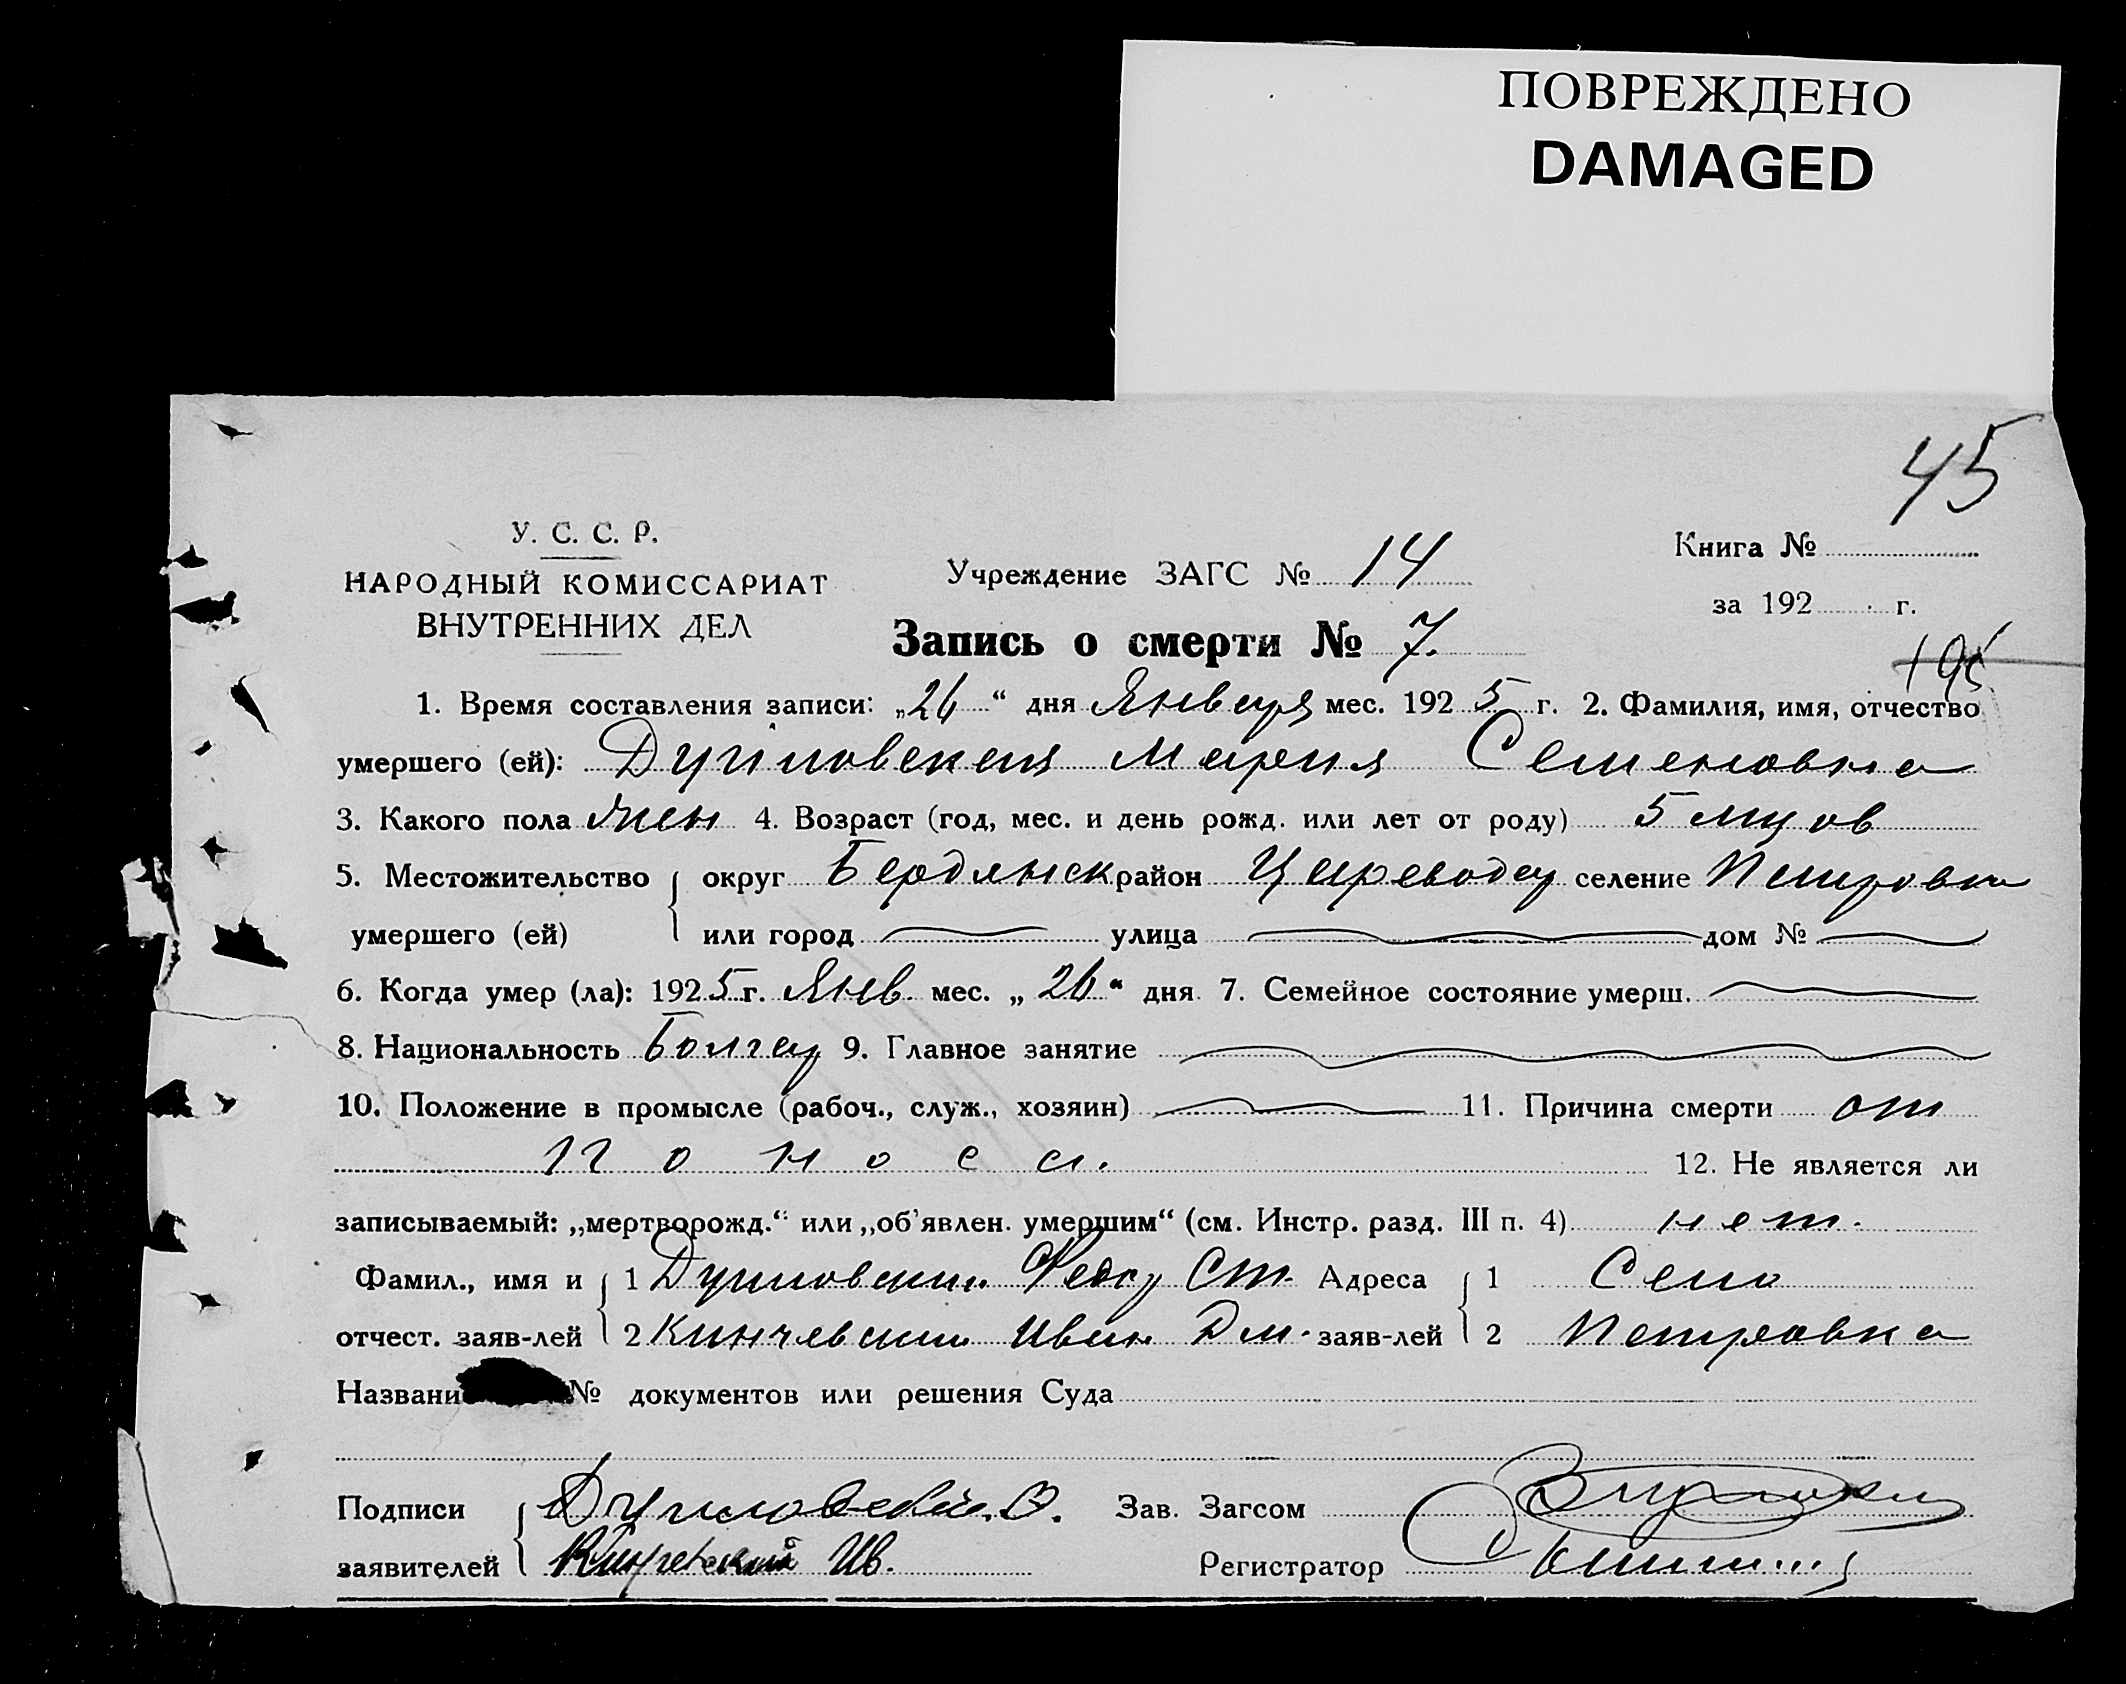 ПОВРЕЖДЕНО
DAMAGED
45
У. С. С. Р.
НАРОДНЫЙ КОМИССАРИАТ
ВНУТРЕННИХ ДЕЛ
Учреждение ЗАГС № 14
Книга №
за 192 г.
Запись о смерти № 7.
1. Время составления записи: „26“ дня Января мес. 1925 г. 2. Фамилия, имя, отчество
умершего (ей): Мария Семеновна
3. Какого пола жен 4. Возраст (год, мес. и день рожд. или лет от роду) 5 м-цов
5. Местожительство округ Бердянск район Цареводар селение Петровка
умершего (ей) или город улица дом №
6. Когда умер (ла): 1925 г. Янв. мес. „26“ дня 7. Семейное состояние умерш.
8. Национальность Болгар 9. Главное занятие
10. Положение в промысле (рабоч., служ., хозяин) 11. Причина смерти от
поноса. 12. Не является ли
записываемый: „мертворожд.“ или „об’явлен. умершим“ (см. Инстр. разд. III п. 4) нет.
Фамил., имя и 1 Ст. Адреса 1 Село
отчест. заяв-лей 2 Кинчевский Иван Дм. заяв-лей 2 Петровка
Названи № документов или решения Суда
Подписи Зав. Загсом
заявителей Ив. Регистратор